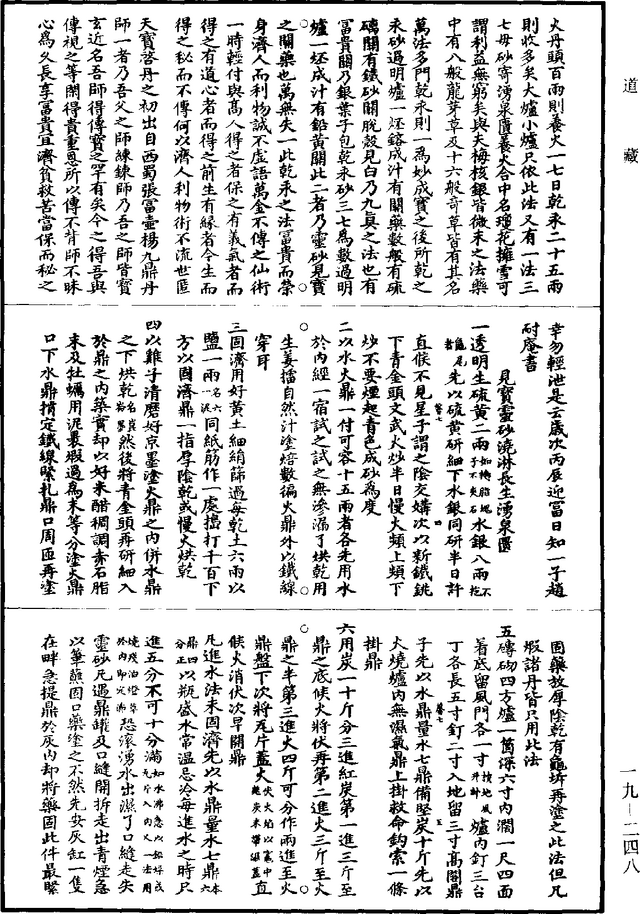 道藏
火丹頭百兩則養火一七日乾汞二十五兩
則收多矣大爐小爐只依此法又有一法三
七母砂寄湧泉匱養火合中名瓊花擁雪可
謂利益無窮矣與天梅核銀皆微末之法藥
中有八般龍芽草及十六般奇草皆有其名
萬法多門乾汞則一為妙成寶之後所乾之
汞砂過明爐一烴鎔成汁有關藥數般有硫
磠關有鐵砂關脫殼見白乃九真之法也有
冨貴關乃銀葉子包乾汞砂三七為數過明
爐一烴成汁有鉛黃關此二者乃靈砂見寶
之關藥也萬無失一此乾汞之法冨貴而榮
身濟人而利物誠不虛語萬金不傳之仙術
一時輕付與高人得之者保之有義氣者而
得之有道心者而得之前生有緣者今生而
得之秘而不傳何以濟人利物術不流世匱
天寶啓丹之初出自西蜀張冨壺楊九鼎丹
師一者乃吾父之師練錬師乃吾之師皆寶
玄近名吾師得傳寶之罕有矣今之得吾與
傳視之等閑得貴重恩所以傳不背師不昧
心為久長享冨貴宜濟貧救苦當保而秘之
幸勿輕泄是云歲次丙辰迎冨日知一子趙
耐庵書
見寶靈砂澆淋長生湧泉匱
一透明生硫黃二兩水銀八兩
先以硫黃研細下水銀同研半日許
直候不見星子謂之陰交媾次以新鐵銚
下青金頭文武火炒半日慢火頻上頻下
炒不要煙起青色成砂為度
二以水火鼎一付可容十五兩者各先用水
於內經一宿試之試之無滲漏了烘乾用
生姜擂自然汁塗焙數徧火鼎外以鐵線
穿耳
三固濟用好黃土細絹篩過每乾土六兩以
鹽一兩同紙筋作一處擣打千百下
方以固濟鼎一指厚陰乾或慢火烘乾
四以雞子清磨好京墨塗火鼎之內併水鼎
之下烘乾然後將青金頭再研細入
於鼎之內築實却以好米醋稠調赤石脂
末及牡蠣用泥裹煅過為末等分塗火鼎
口下水鼎擠定鐵線緊扎鼎口周匝再塗
固藥放厚陰乾有龜坼再塗之此法但凡
煅諸丹皆只用此法
五磚砌四方爐一箇深六寸內濶一尺四面
着底留風門各一寸爐內釘三台
丁各長五寸釘二寸入地留三寸高閣鼎
子先以水鼎量水七鼎備堅炭十斤先以
火燒爐內無濕氣鼎上掛救命鈎索一條
掛鼎
六用炭一十斤分三進紅炭第一進三斤至
鼎之底候火將伏再第二進火三斤至火
鼎之半第三進火四斤可分作兩進至火
鼎盤下次將瓦片蓋火直
候火消伏次早開鼎
凡進水法未固濟先以水鼎量水七鼎
以瓶盛水常温忌冷每進水之時只
進五分不可十分滿
恐滾湧水出濕了口縫走失
靈砂凡遇鼎罐及口縫開拆走出青煙急
以筆蘸固口藥塗之不然先安灰缸一隻
在畔急提鼎於灰內却將藥固此件最緊
一九—二四八